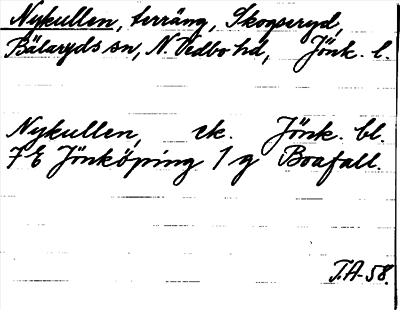 Nykullen, terräng, Skogseryd,
Bälaryds sn, N. Vedbo hd, Jönk. l.
Nykullen, ek. Jönk. bl.
7 E Jönköping 1 g Boafall.
T.A-58.